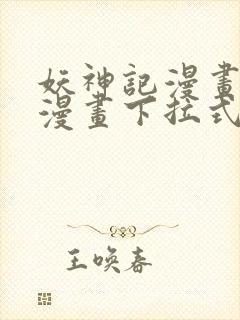 妖神記漫畫
漫畫下拉式
王喚春